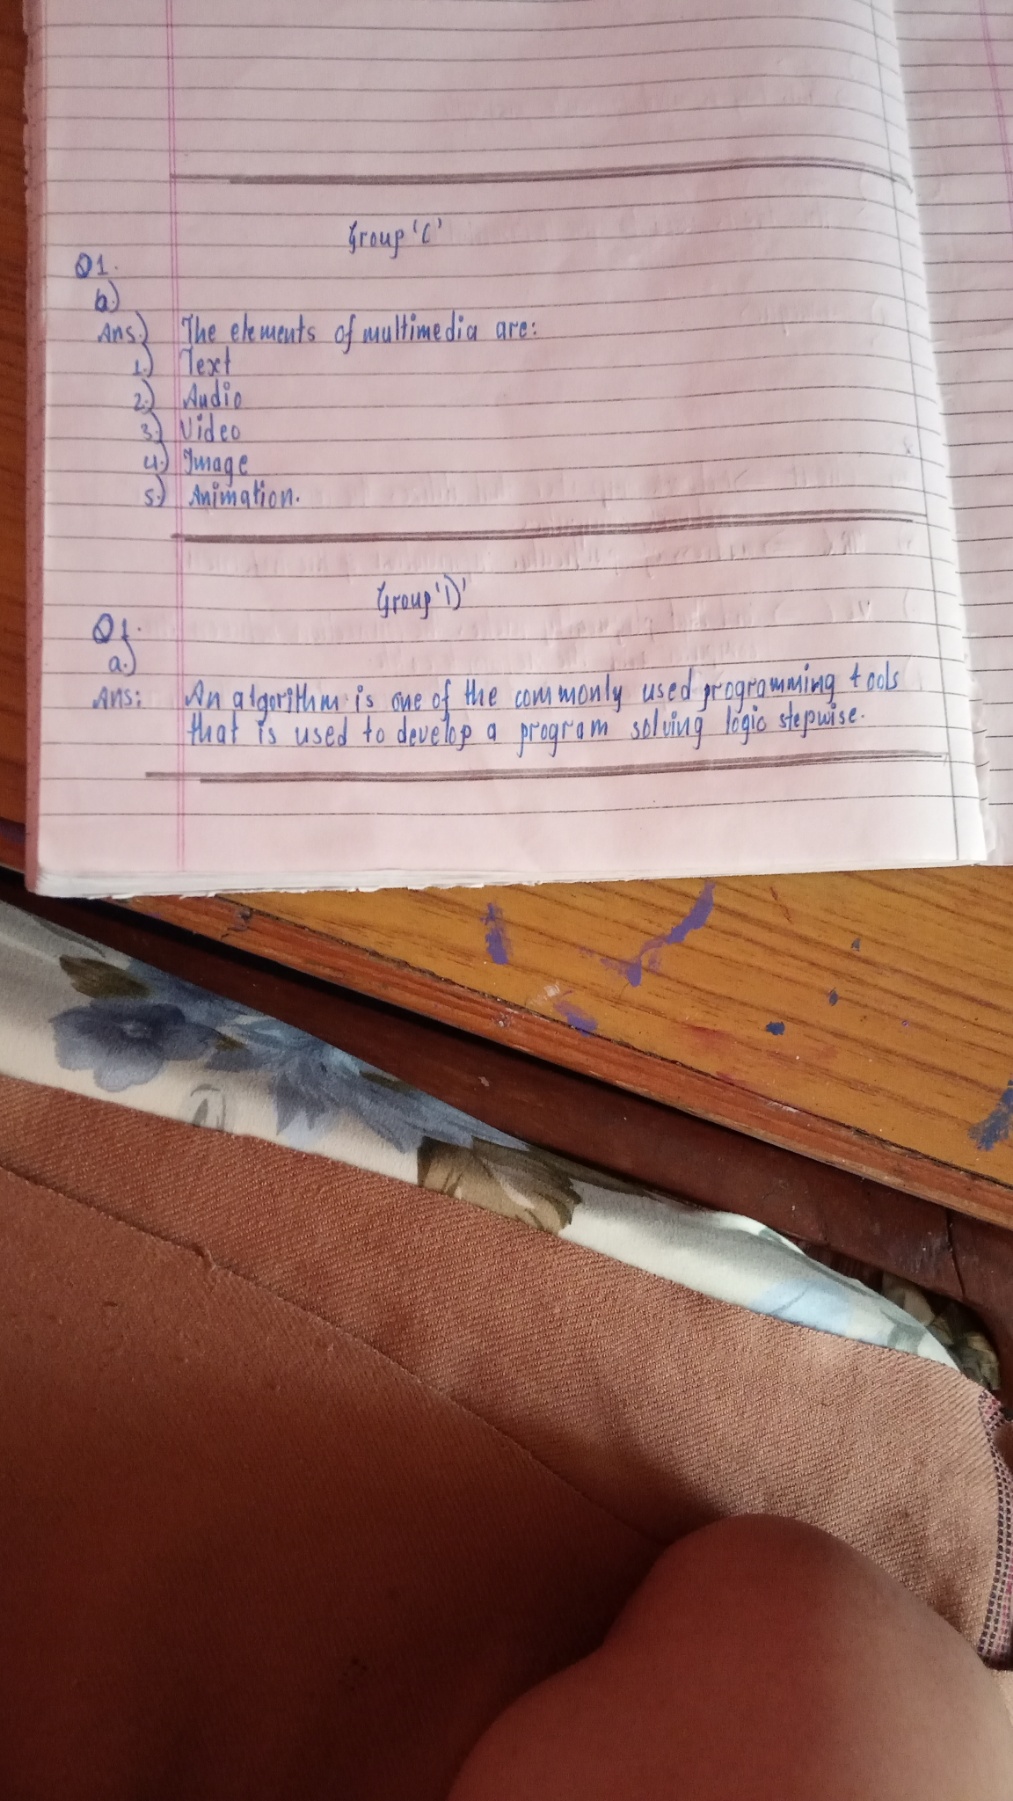 Group 'C'
Q1.
b)
Ans.) The elements of multimedia are:
1.) Text
2.) Audio
3.) Video
4.) Image
5.) Animation.
Group 'D'
Q1.
a.)
Ans: An algorithm is one of the commonly used programming tools
that is used to develop a program solving logic stepwise.